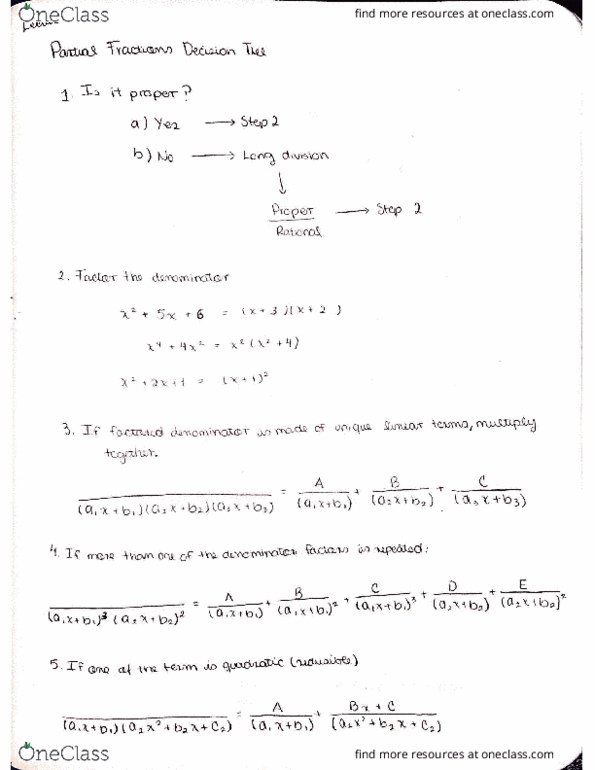 OneClass
find more resources at oneclass.com
Lecture
Partial Fractions Decision Tree
1. Is it proper?
a) Yes → Step 2
b) No → Long division
↓
Proper → Step 2
Rational
2. Factor the denominator
x² + 5x + 6 = (x + 3)(x + 2)
x⁴ + 4x² = x² (x² + 4)
x² + 2x + 1 = (x + 1)²
3. If factored denominator is made of unique linear terms, multiply
together.
A B C
(a₁x + b₁)(a₂x + b₂)(a₃x + b₃) = (a₁x + b₁) + (a₂x + b₂) + (a₃x + b₃)
4. If more than one of the denominator factors is repeated:
A B C D E
(a₁x+b₁)³ (a₂x + b₂)² = (a₁x+b₁) + (a₁x+b₁)² + (a₁x+b₁)³ + (a₂x+b₂) + (a₂x+b₂)²
5. If one of the term is quadratic (reducible)
A Bx + C
(a₁x+b₁)(a₂x²+b₂x+c₂) = (a₁x+b₁) + (a₂x²+b₂x+c₂)
OneClass
find more resources at oneclass.com